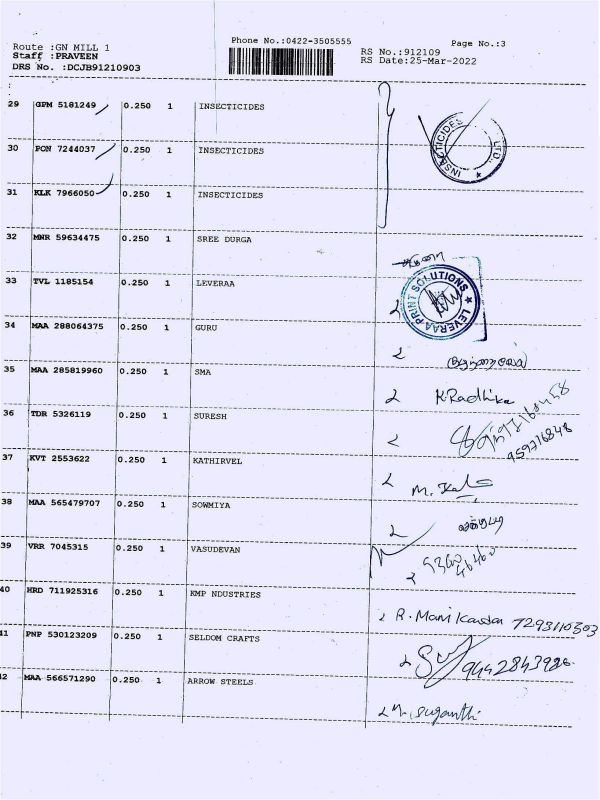 Phone No.:0422-3505555
Page No.:3
Route :GN MILL 1
RS No.:912109
Staff :PRAVEEN
RS Date:25-Mar-2022
DRS No. :DCJB91210903
29 GPM 5181249 0.250 1 INSECTICIDES
INSECTICIDES LTD.
30 PON 7244037 0.250 1 INSECTICIDES
31 KLK 7966050 0.250 1 INSECTICIDES
32 MNR 59634475 0.250 1 SREE DURGA
33 TVL 1185154 0.250 1 LEVERAA
LEVERAA PRINT SOLUTIONS
34 MAA 288064375 0.250 1 GURU
35 MAA 285819960 0.250 1 SMA
K.Radhika
36 TDR 5326119 0.250 1 SURESH
37 KVT 2553622 0.250 1 KATHIRVEL
38 MAA 565479707 0.250 1 SOWMIYA
39 VRR 7045315 0.250 1 VASUDEVAN
40 HRD 711925316 0.250 1 KMP NDUSTRIES
R. Manikandan 7293110303
41 PNP 530123209 0.250 1 SELDOM CRAFTS
9442843926
42 MAA 566571290 0.250 1 ARROW STEELS
M. Suganthi